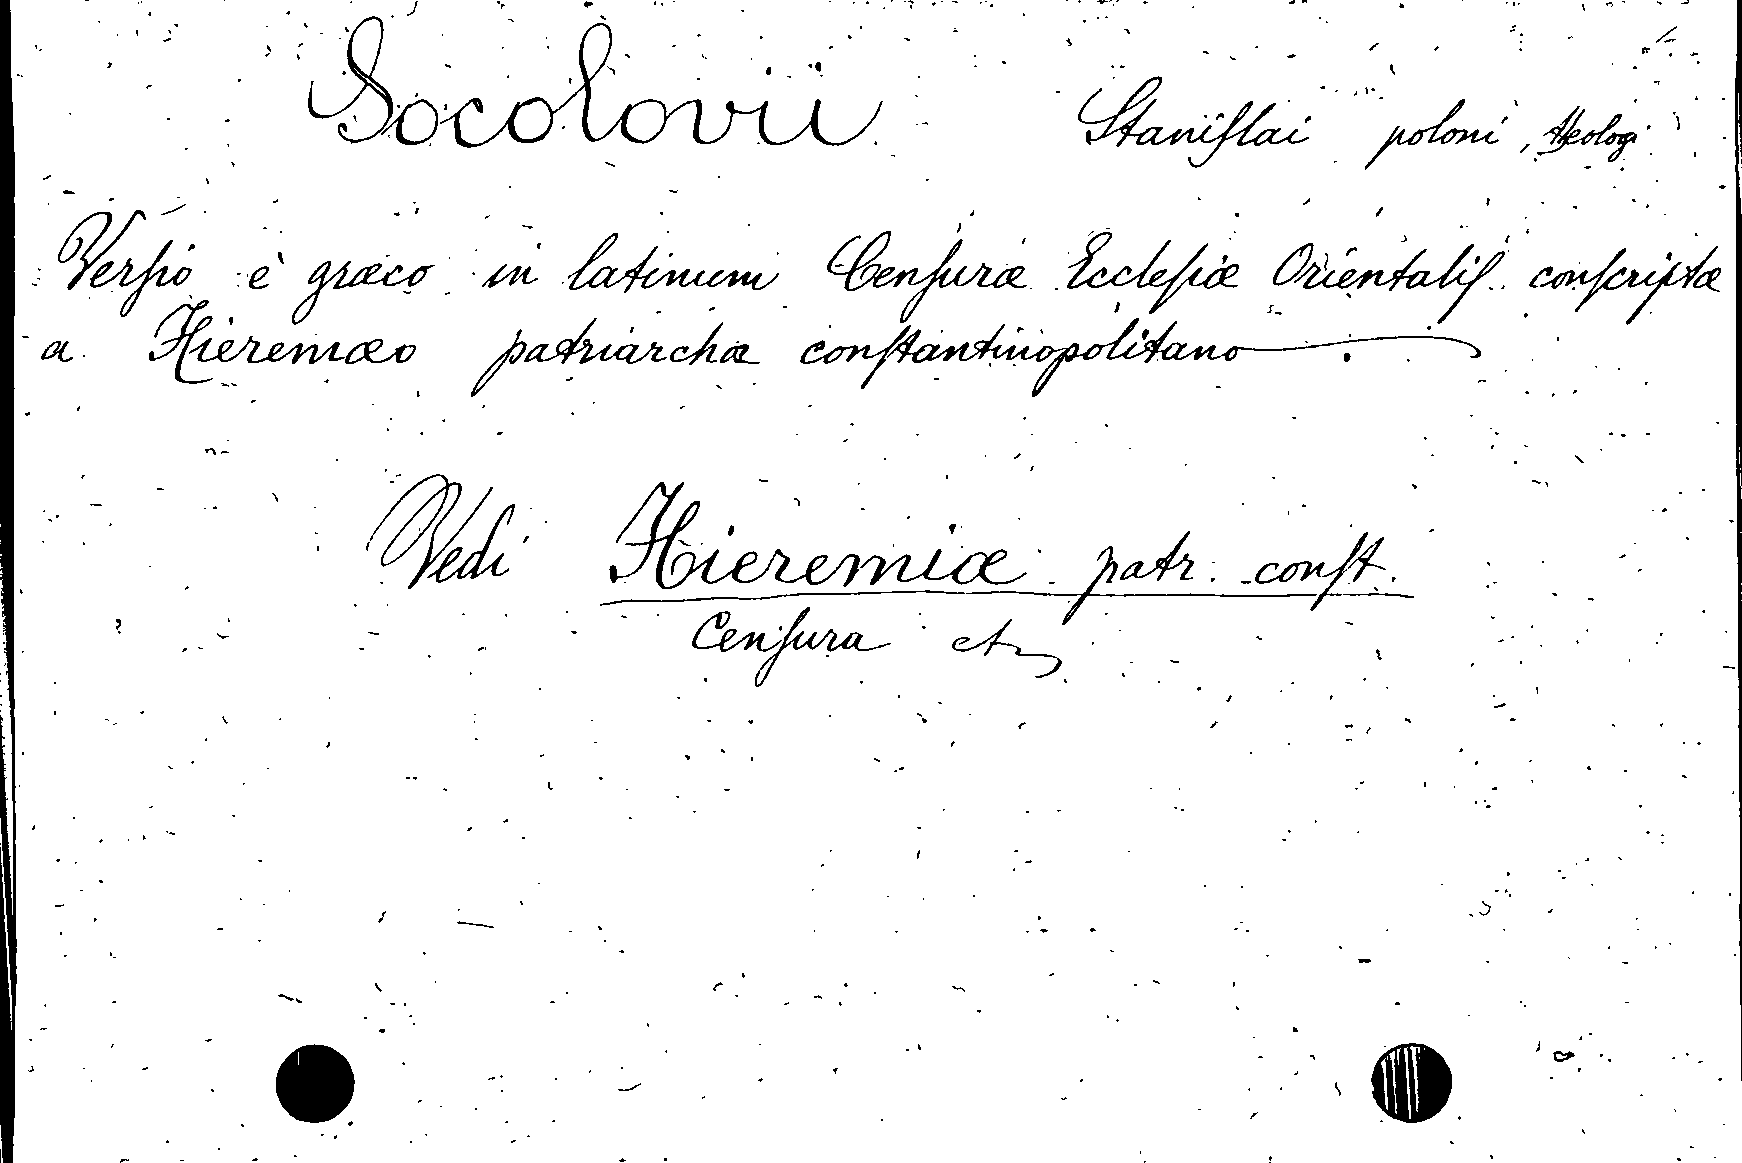 Socolovii Staniſlai poloni, theologi
Verſio è græco in latinum Cenſuræ Eccleſiæ Orientaliſ conſcriptæ
a Hieremæo patriarchæ conſtantinopolitano
Vedi Hieremiæ patr. conſt.
Cenſura etc